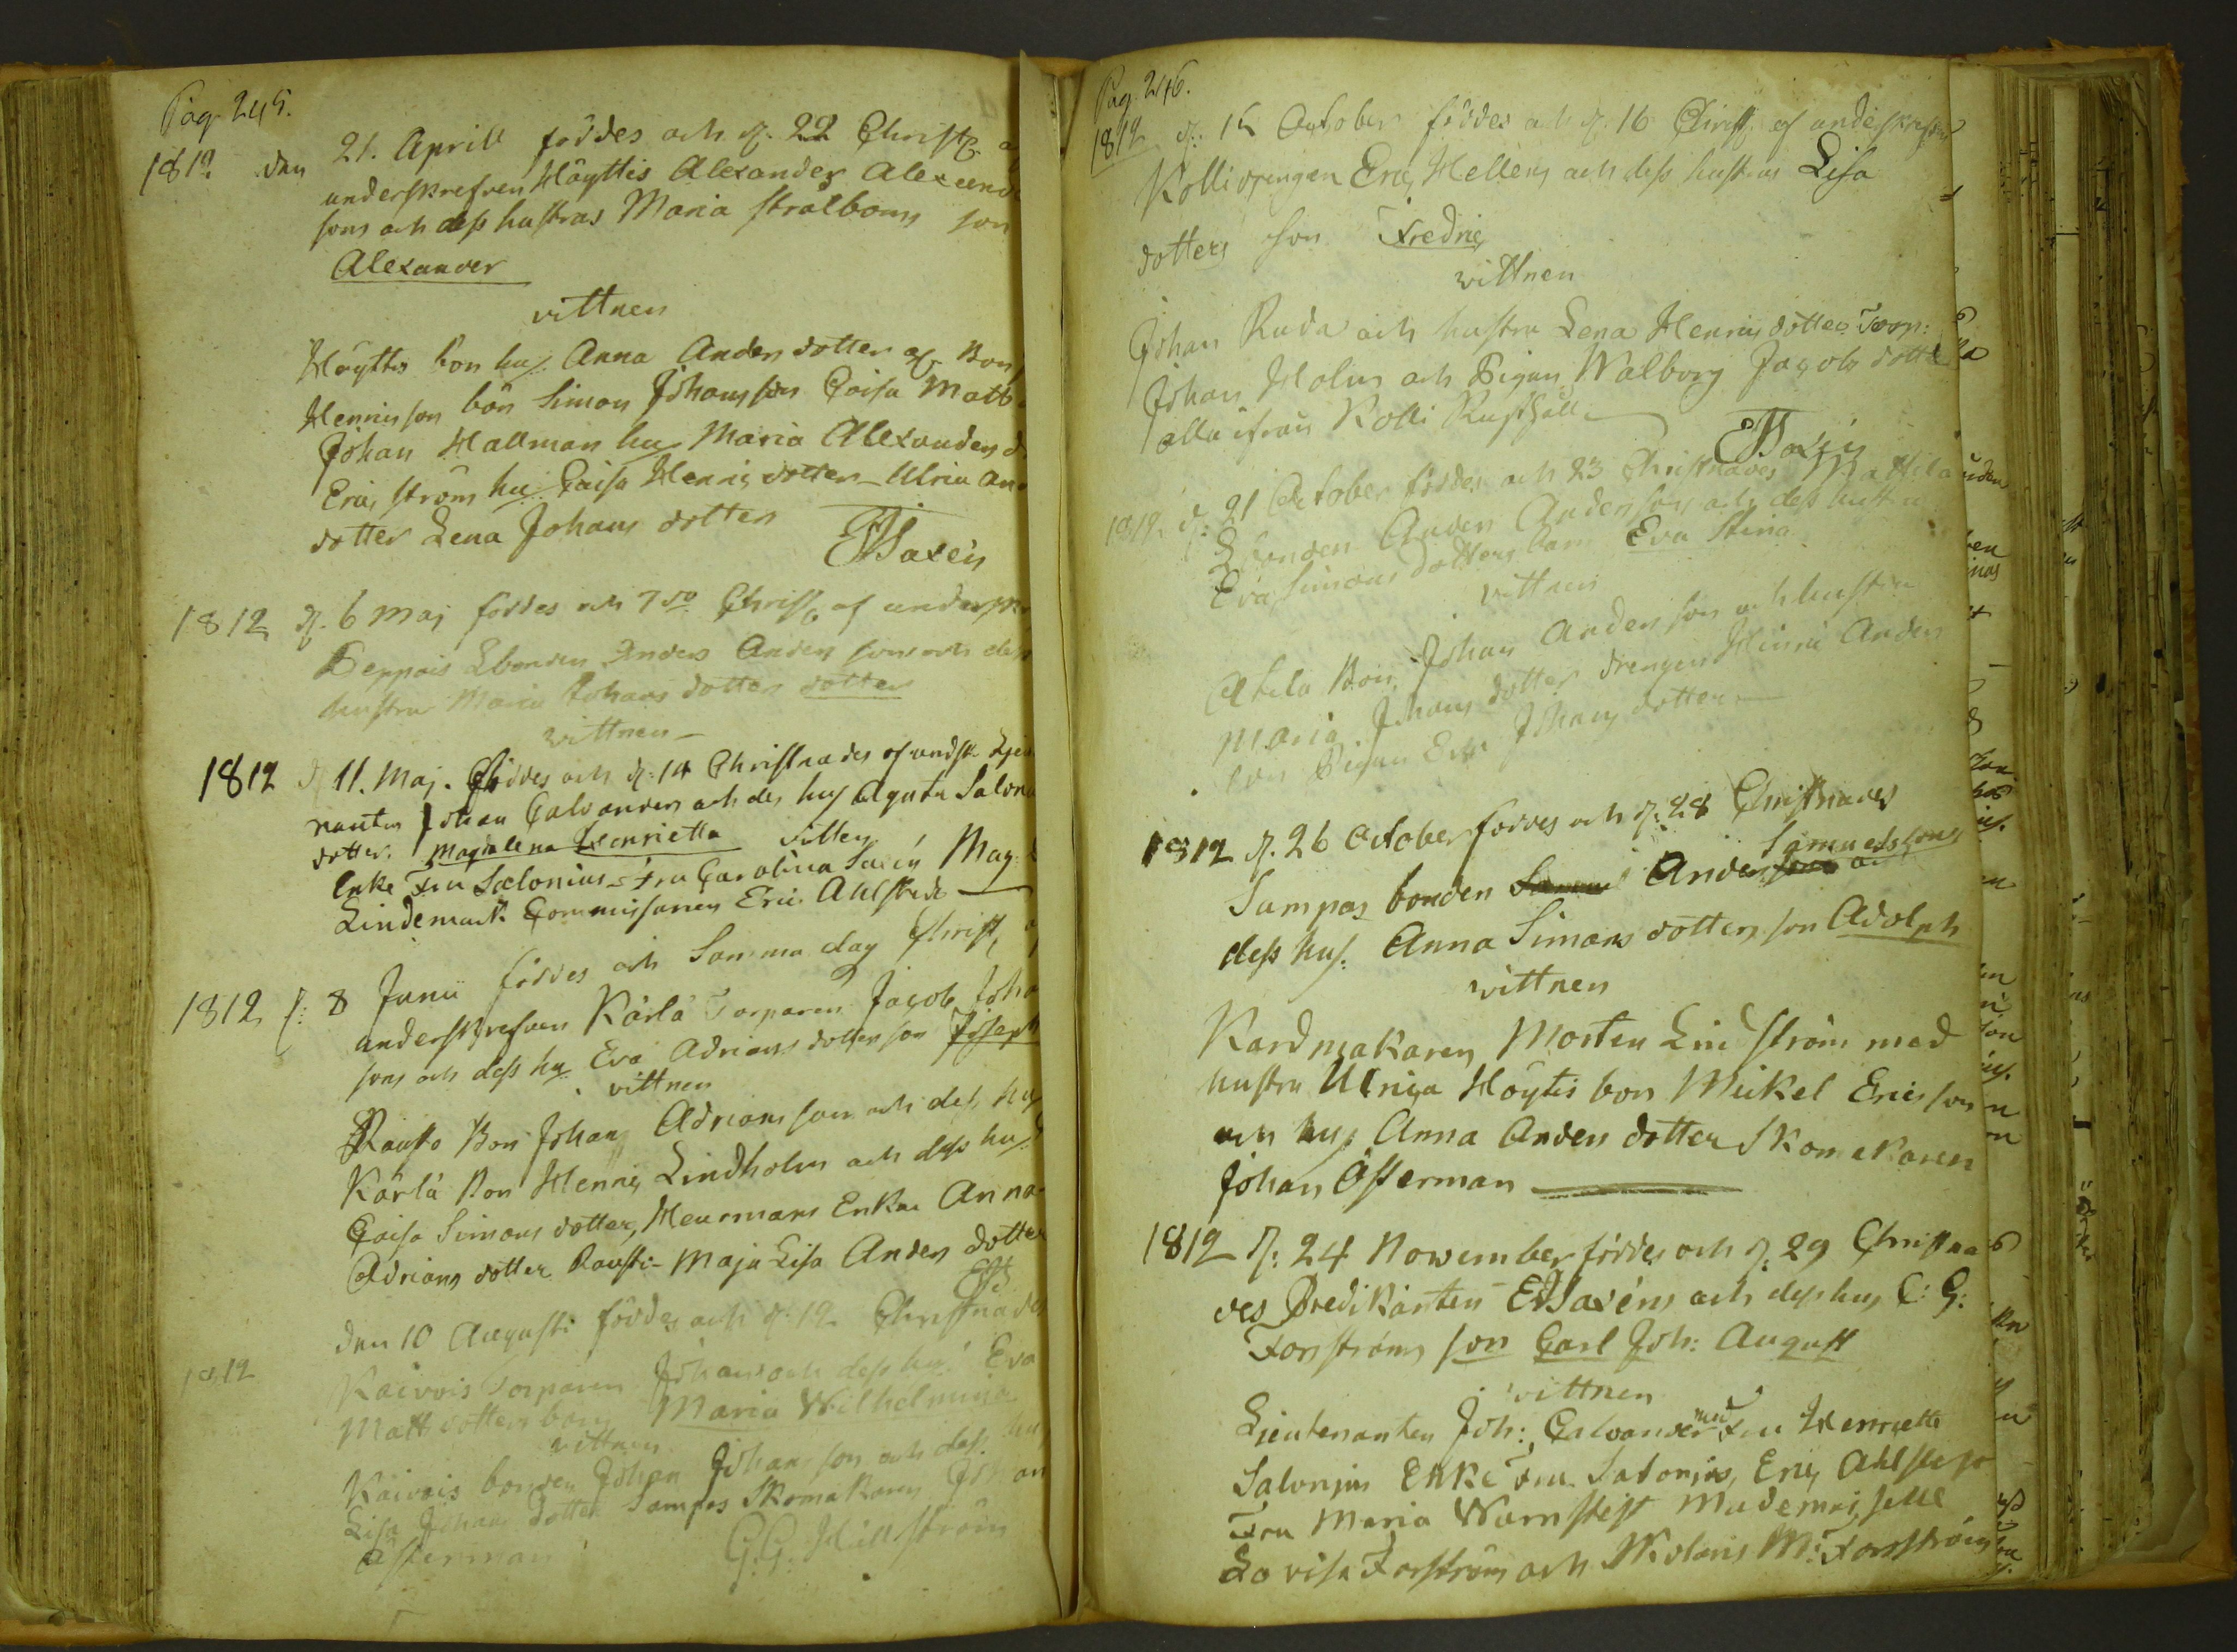 Pag. 245.
1812 den 21. Aprill föddes och d. 22 Christ.
underskrefven Höyttis Alexander Alexand
sons och dess hustrus Maria stralboms son
Alexander
vittnen
Höyttis bon hus. Anna Anders dotter Bon
Henricsson bon Simon Johansson Caisa Matts
Johan Hallman hu Maria Alexanders d
Eric ström hu Caisa Henrics dotter Ulrica An
dotter Lena Johans dotter
E Saxén
1812 d. 6 Maj föddes och 7de Christ, af undersk
Anders Anders sons och dess
hustru Maria Johans dotters dotter
vittnen
1812 d 11. Maj. föddes och d: 14 Christnades af undsk. Lieu
nanten Johan Calvanders och des hus Agata Salon
dotter. Magdalena Henrietta vittnen
Enke Fru Salonius - Fru Carolina Saxén Mag:
Lindemark Commissarien Eric Ahlstedt
1812 d: 8 Junii föddes och Samma dag Christ, af
underskrefven Kärlä Torparen Jacob Joha
sons och dess hu Eva Adrians dotter son Joseph
vittnen
Rausto Bon Johan Adriansson och dess hus
Kärlä Bon Henric Lindholm och dess hus
Caisa Simons dotter, Heurmans Enka Anna
Adrians dotter Rausti - Maja Lisa Anders dotter
ES
1812 den 10 Augusti föddes och d. 12 Christnades
Kaivois Torparen Johans och dess hus. Eva
Matts dotters barn Maria Wilhelmina
vittnen
Kaivois bonden Johan Johansson och dess hus
Lisa Johans dotter Sampos Skomakaren Johan
österman
G. G. Hällström
Pag. 246.
1812 d: 15 October föddes och d. 16 Christ, af underskrefven
Kolli drengen Eric Hellens och dess hustrus Lisa
dotters son Fredric
vittnen
Johan Ruda och hustru Lena Henrics dotter Torp:
Johan Holm och Pigan Walborg Jacobs dotter
alla ifrån Kolli Rusthåll
E Saxén
1812 d: 21 October föddes och 23 Christnades Mattila
Lbonden Anders Anderssons och dess hustru
Eva Simons dotters barn Eva Stina
vittnen
Atila Bon Johan Andersson och hustru
Maria Johans dotter drengen Henric Anders
son Pigan Eva Johans dotter
1812 d. 26 October föddes och d: 28 Christnades
Sampos bonden Anders Samuelssons
dess hus. Anna Simons dotters son Adolph
vittnen
Kardmakaren Morten Lindström med
hustru Ulrica Höytis bon Mickel Ericsson
och hus Anna Anders dotter Skomakaren
Johan Österman
1812 d: 24 Nowember föddes och d: 29 Christna
des Predikanten E Saxéns och dess hus C: G:
Forströms son Carl Joh: August
vittnen
Lieutenanten Joh: Calvander med Fru Henriette
Salonjus Enke Fru Salonjus, Eric Ahlstedt
Fru Maria Warnstest Mademoiselle
Lovisa Forström och Nicolaris M: Forsström